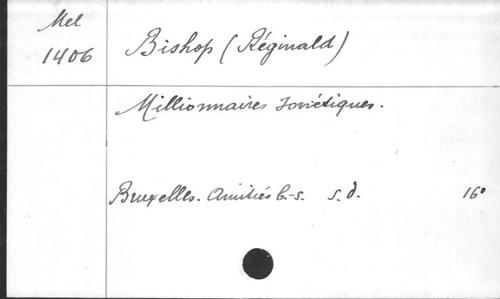 Mel
1406
Bishop (Réginald)
Millionnaires Soviétiques.
Bruxelles. Amitiés b.-s. s.d. 16°